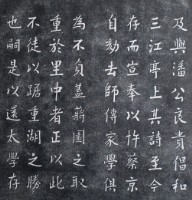 及與潘公良貴倡和
三江亭上其詩至今
存而宣奉以忤蔡京
自劾去師傳家學俱
為不負蓋蕞園之取
重於里中者正以此
不徒以踞重湖之勝
也嗣是以還太學存